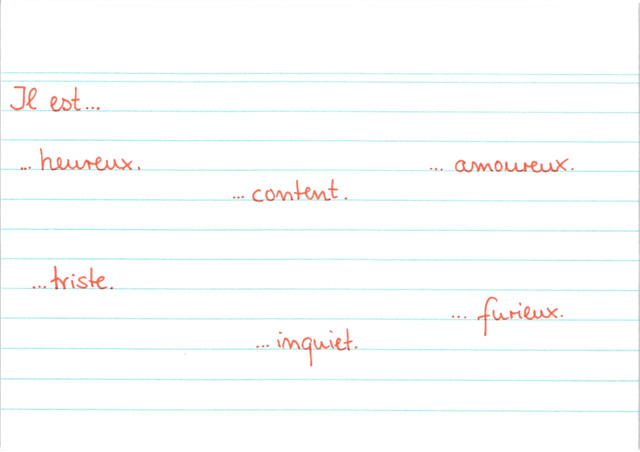 Il est...
...heureux.
... amoureux.
... content.
...triste.
... furieux.
...inquiet.